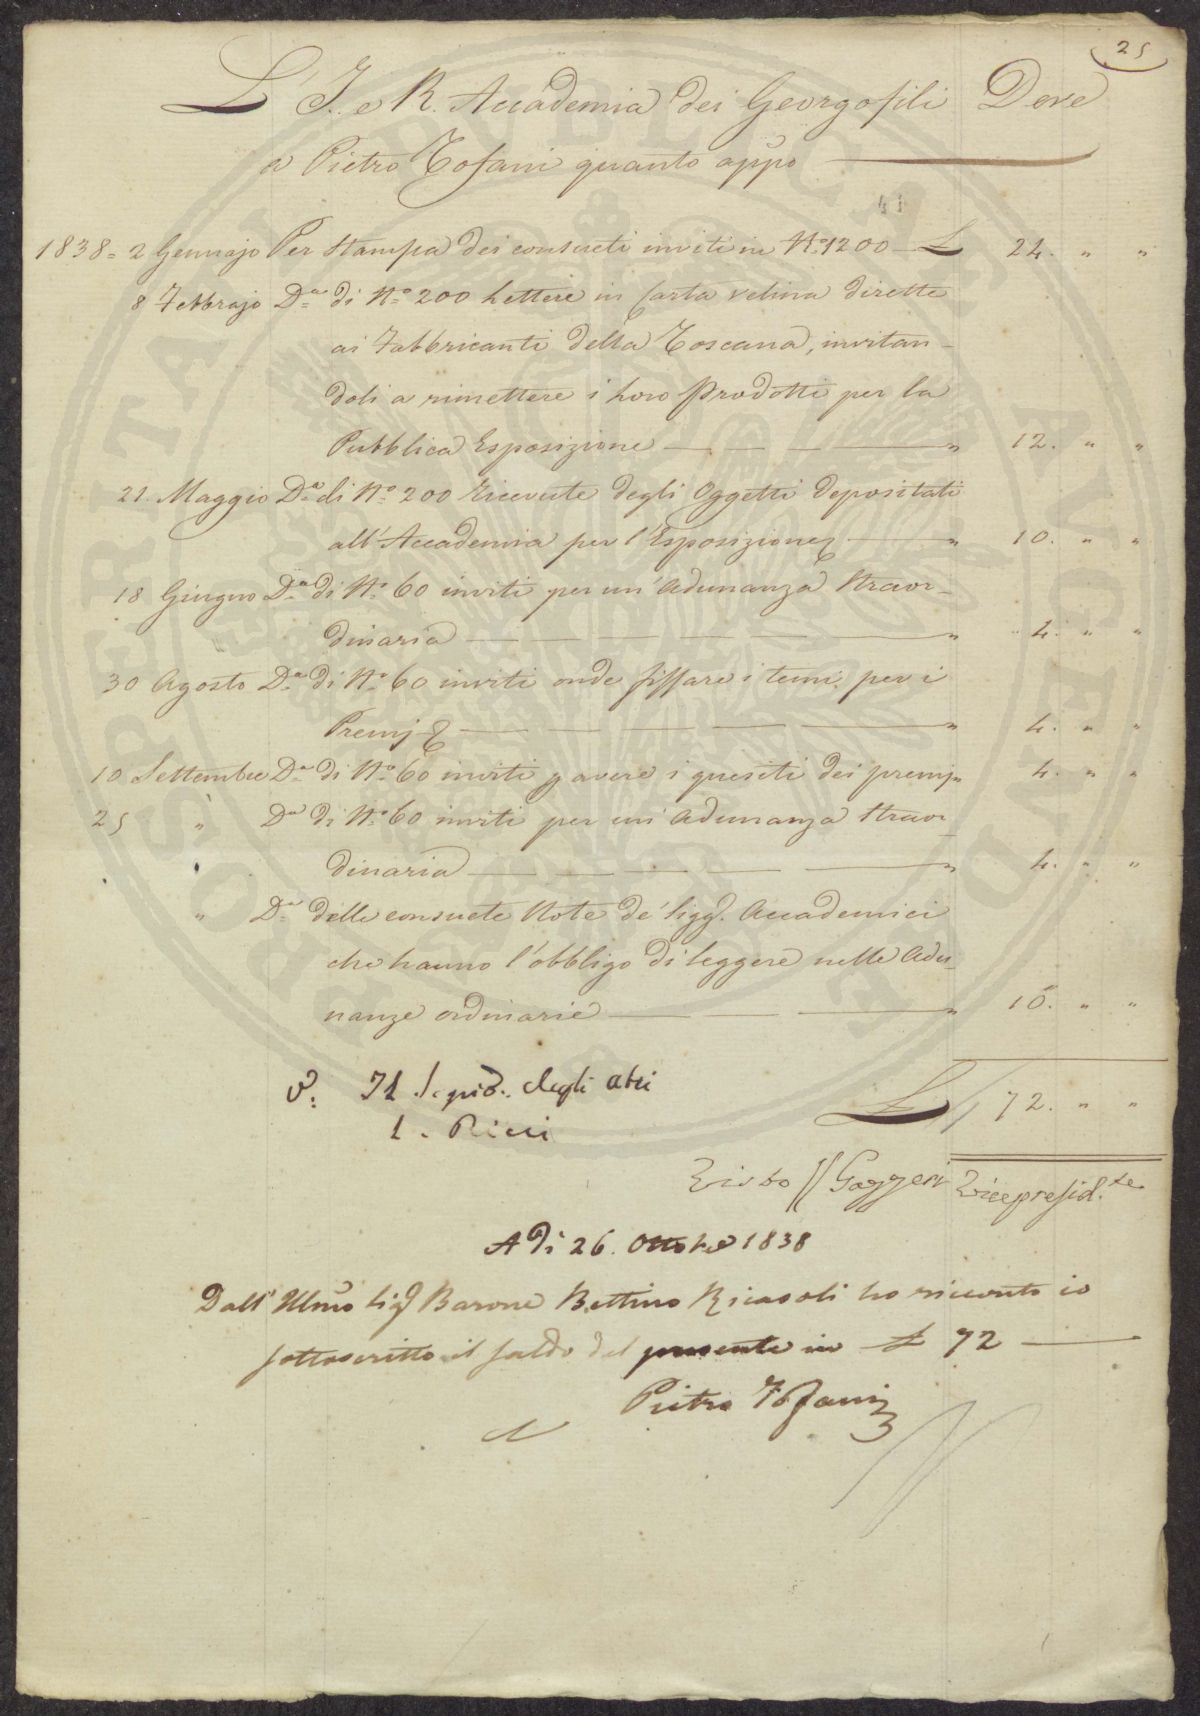 25
L' I. e R. Accademia dei Georgofili Deve
a Pietro Tofani quanto appo
1838 = 2 Gennajo Per Stampa dei consueti inviti in N.° 1200 L 24. " "
8 Febbrajo D.a di N.° 200 Lettere in Carta velina dirette
ai Fabbricanti della Toscana, invitan-
doli a rimettere i loro Prodotti per la
Pubblica Esposizione " 12. " "
21 Maggio D.a di N.° 200 Ricevute degli Oggetti depositati
all'Accademia per l'Esposizione " 10. " "
18 Giugno D.a di N.° 60 inviti per un'Adunanza Straor-
dinaria " 4. " "
30 Agosto D.a di N.° 60 inviti onde fissare i temi per i
Premj " 4. " "
10 Settembre D.a di N.° 60 inviti p avere i quesiti dei premj " 4. " "
25 " D.a di N.° 60 inviti per un'Adunanza Straor-
dinaria " 4. " "
" D.a delle consuete Note de' Sigg. Accademici
che hanno l'obbligo di leggere nelle Adu-
nanze ordinarie " 10. " "
V. Il Seg.rio degli atti
L. Ricci
L 72. " "
Visto // Gazzeri Vicepresid.te
A di 26. Ottobre 1838
Dall' Illmo Sig Barone Bettino Ricasoli ho ricevuto io
sottoscritto il saldo del presente in £ 72
Pietro Tofani
PROSPERITATI PUBLICAE AUGENDAE